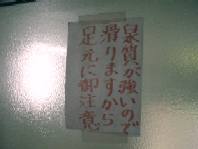 泉質が強いので
滑りますから
足元に御注意